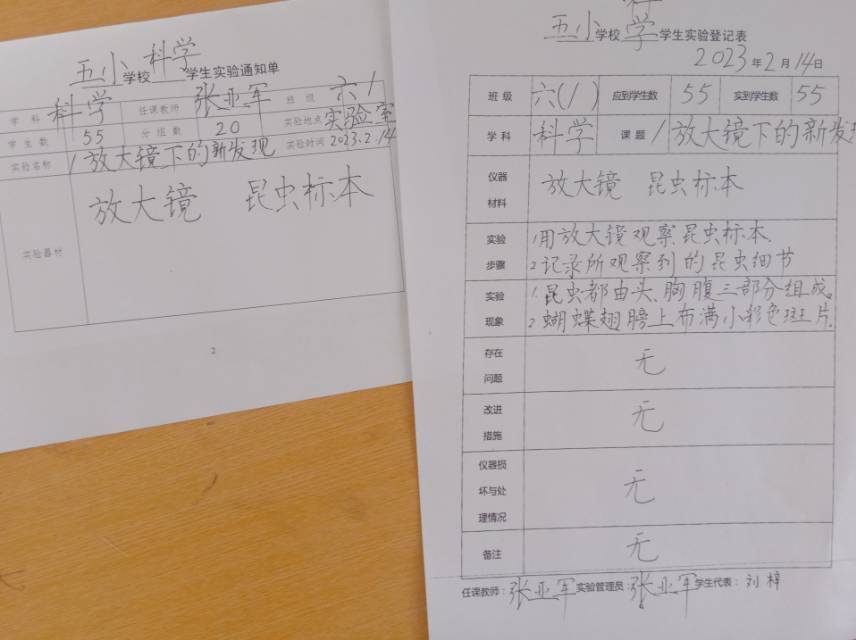 五小学校科学学生实验通知单
学科 科学 任课教师 张亚军 班级 六1
学生数 55 分组数 20 实验地点 实验室
实验名称 1放大镜下的新发现 实验时间 2023.2.14
实验器材 放大镜 昆虫标本
2
五小学校科学学生实验登记表
2023年2月14日
班级 六(1) 应到学生数 55 实到学生数 55
学科 科学 课题 1放大镜下的新发现
仪器材料 放大镜 昆虫标本
实验步骤 1用放大镜观察昆虫标本.
2记录所观察到的昆虫细节
实验现象 1.昆虫都由头、胸腹三部分组成。
2蝴蝶翅膀上布满小彩色斑片.
存在问题 无
改进措施 无
仪器损坏与处理情况 无
备注 无
任课教师:张亚军实验管理员:张亚军学生代表:刘梓